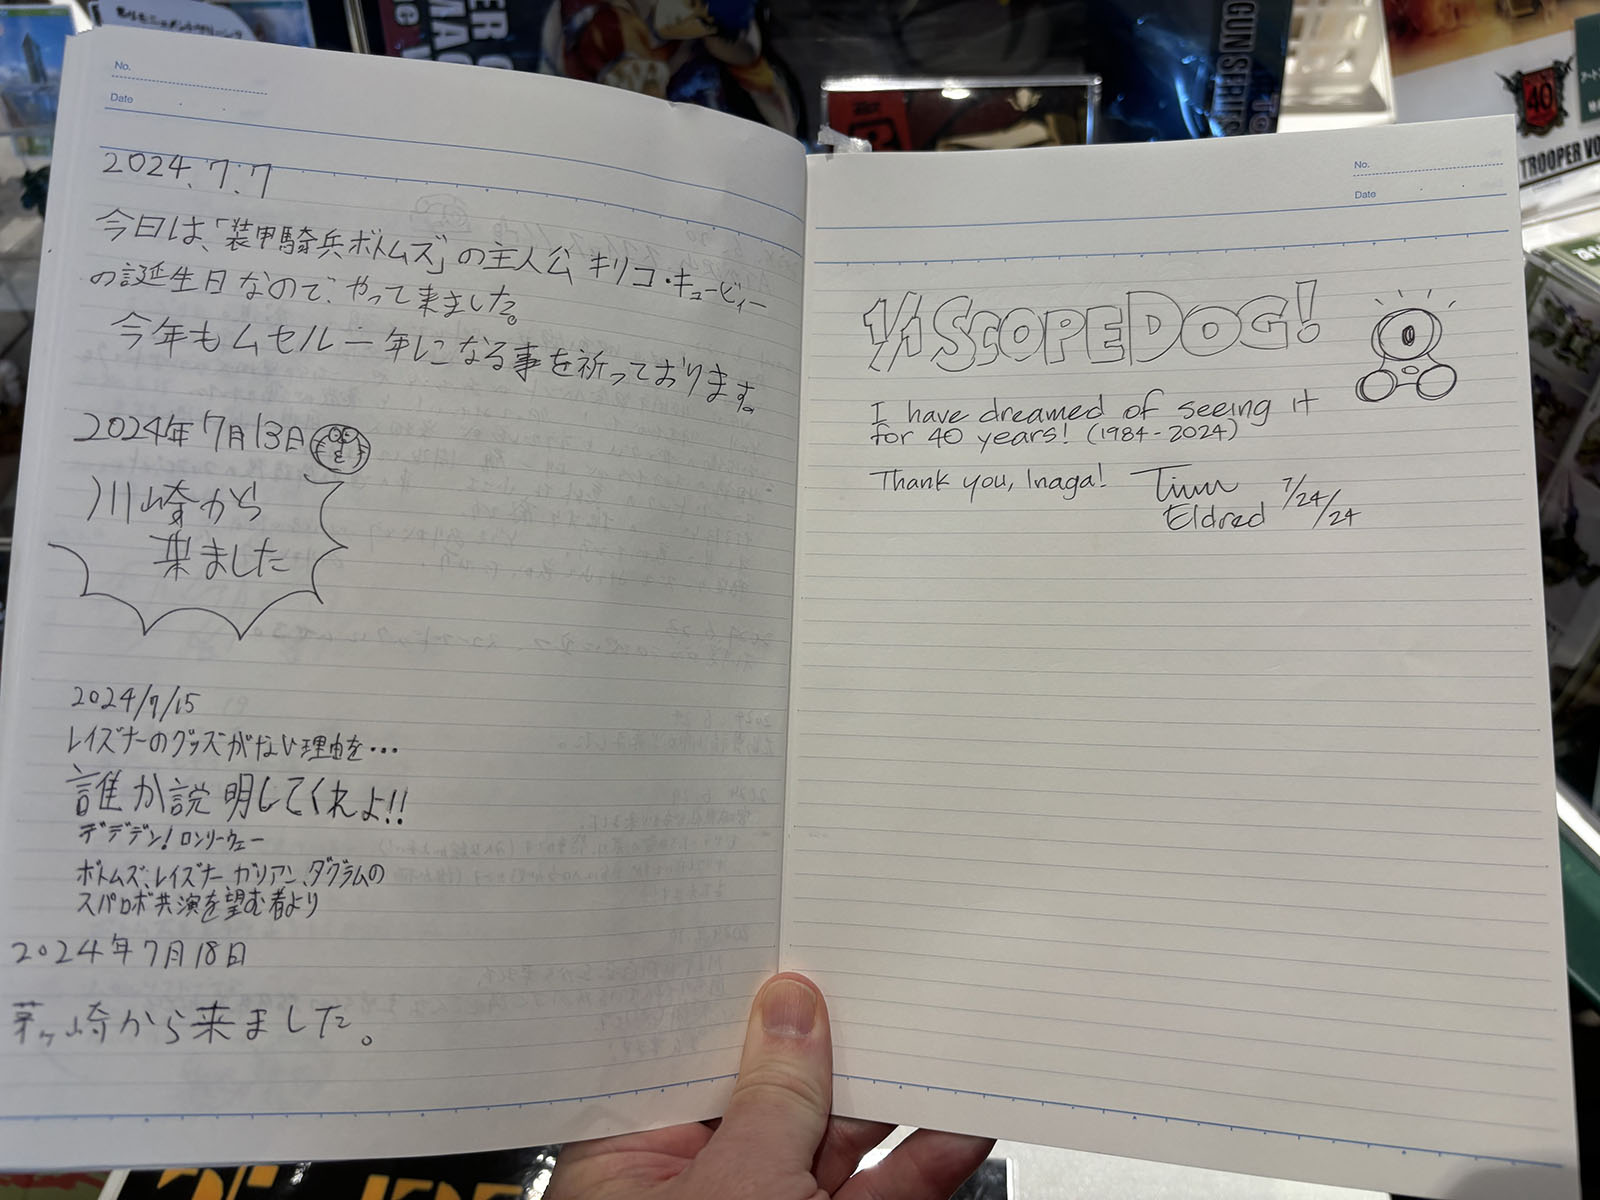 No.
Date
2024.7.7
今日は、「装甲騎兵ボトムズ」の主人公 キリコ・キュービィー
の誕生日なので、やって来ました。
今年もムセル一年になる事を祈っております。
2024年7月13日
川崎から
来ました
2024/7/15
レイズナーのグッズがない理由を…
誰か説明してくれよ!!
デデデデン! ロンリーウェー
ボトムズ、レイズナー、ガリアン、ダグラムの
スパロボ共演を望む者より
2024年7月18日
茅ヶ崎から来ました。
No.
Date
1/1 SCOPEDOG!
I have dreamed of seeing it
for 40 years! (1984-2024)
Thank you, Inagi!
Tim
Eldred 7/24/24
GUN SERIES
40
TROOPER VO